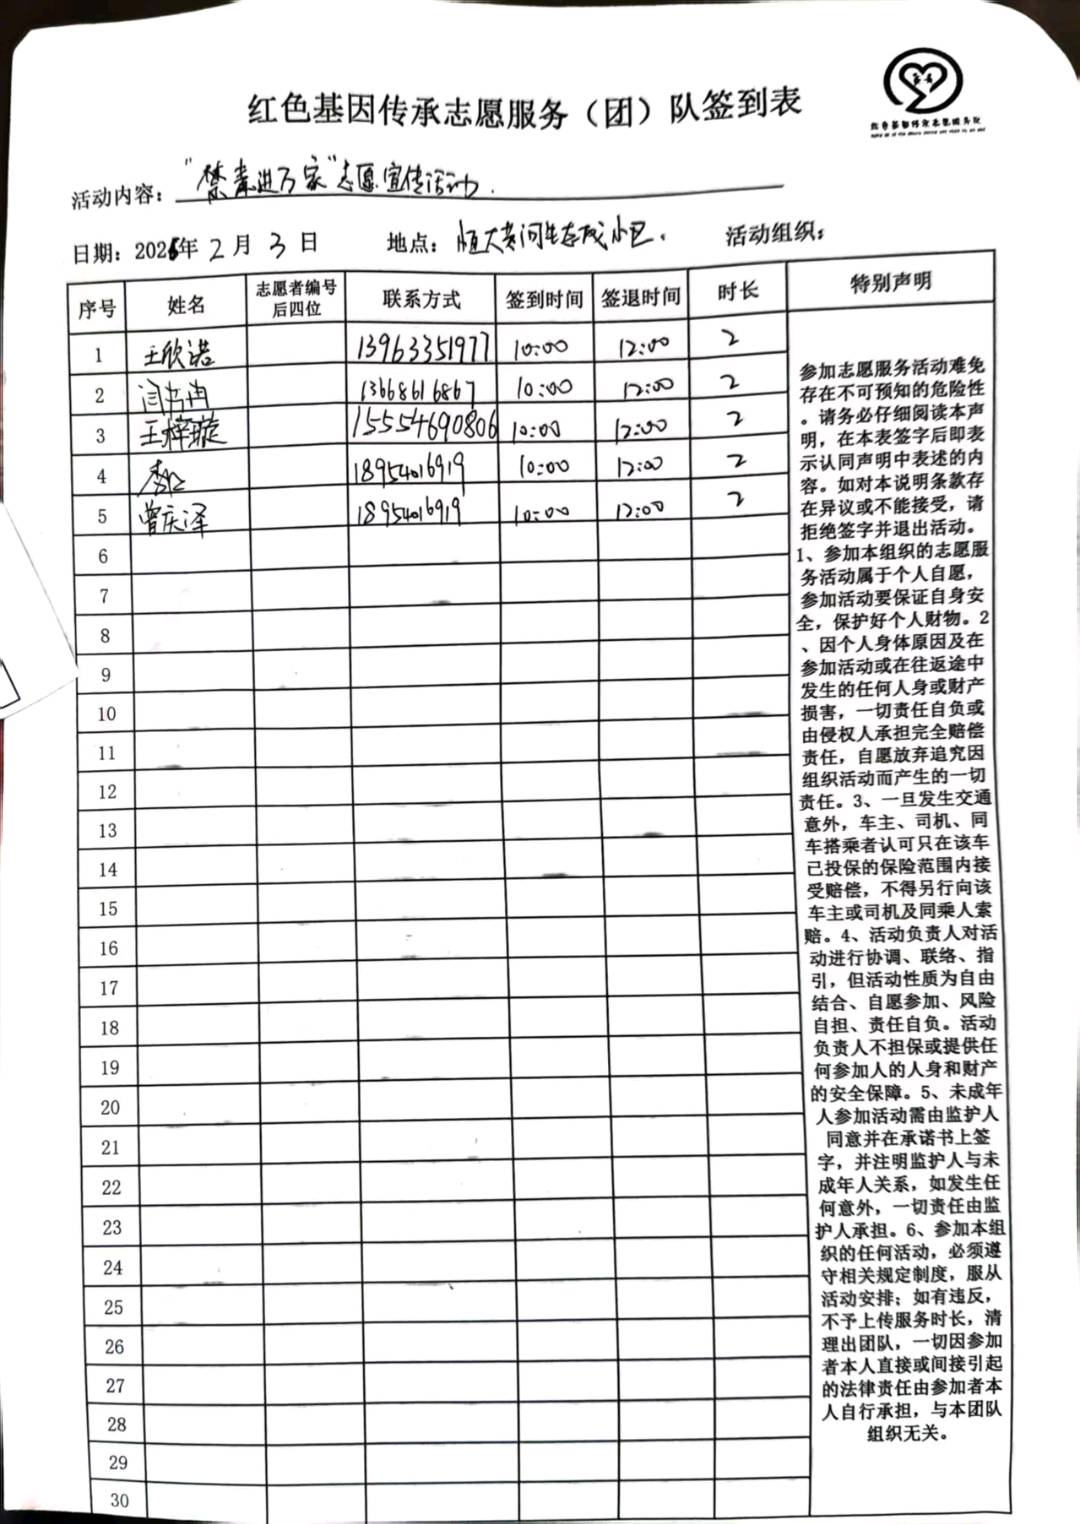 红色基因传承志愿服务（团）队签到表
红色基因传承志愿服务队
活动内容："禁毒进万家"志愿宣传活动.
日期：2026年2月3日 地点：恒大黄河生态城小区. 活动组织：
序号 姓名 志愿者编号后四位 联系方式 签到时间 签退时间 时长 特别声明
1 王欣诺 13963351977 10:00 12:00 2
2 闫书冉 13668616867 10:00 12:00 2
3 王梓璇 15554690806 10:00 12:00 2
4 18954016919 10:00 12:00 2
5 曾庆泽 18954016919 10:00 12:00 2
6
7
8
9
10
11
12
13
14
15
16
17
18
19
20
21
22
23
24
25
26
27
28
29
30
参加志愿服务活动难免
存在不可预知的危险性
。请务必仔细阅读本声
明，在本表签字后即表
示认同声明中表述的内
容。如对本说明条款存
在异议或不能接受，请
拒绝签字并退出活动。
1、参加本组织的志愿服
务活动属于个人自愿，
参加活动要保证自身安
全，保护好个人财物。2
、因个人身体原因及在
参加活动或在往返途中
发生的任何人身或财产
损害，一切责任自负或
由侵权人承担完全赔偿
责任，自愿放弃追究因
组织活动而产生的一切
责任。3、一旦发生交通
意外，车主、司机、同
车搭乘者认可只在该车
已投保的保险范围内接
受赔偿，不得另行向该
车主或司机及同乘人索
赔。4、活动负责人对活
动进行协调、联络、指
引，但活动性质为自由
结合、自愿参加、风险
自担、责任自负。活动
负责人不担保或提供任
何参加人的人身和财产
的安全保障。5、未成年
人参加活动需由监护人
同意并在承诺书上签
字，并注明监护人与未
成年人关系，如发生任
何意外，一切责任由监
护人承担。6、参加本组
织的任何活动，必须遵
守相关规定制度，服从
活动安排；如有违反，
不予上传服务时长，清
理出团队，一切因参加
者本人直接或间接引起
的法律责任由参加者本
人自行承担，与本团队
组织无关。